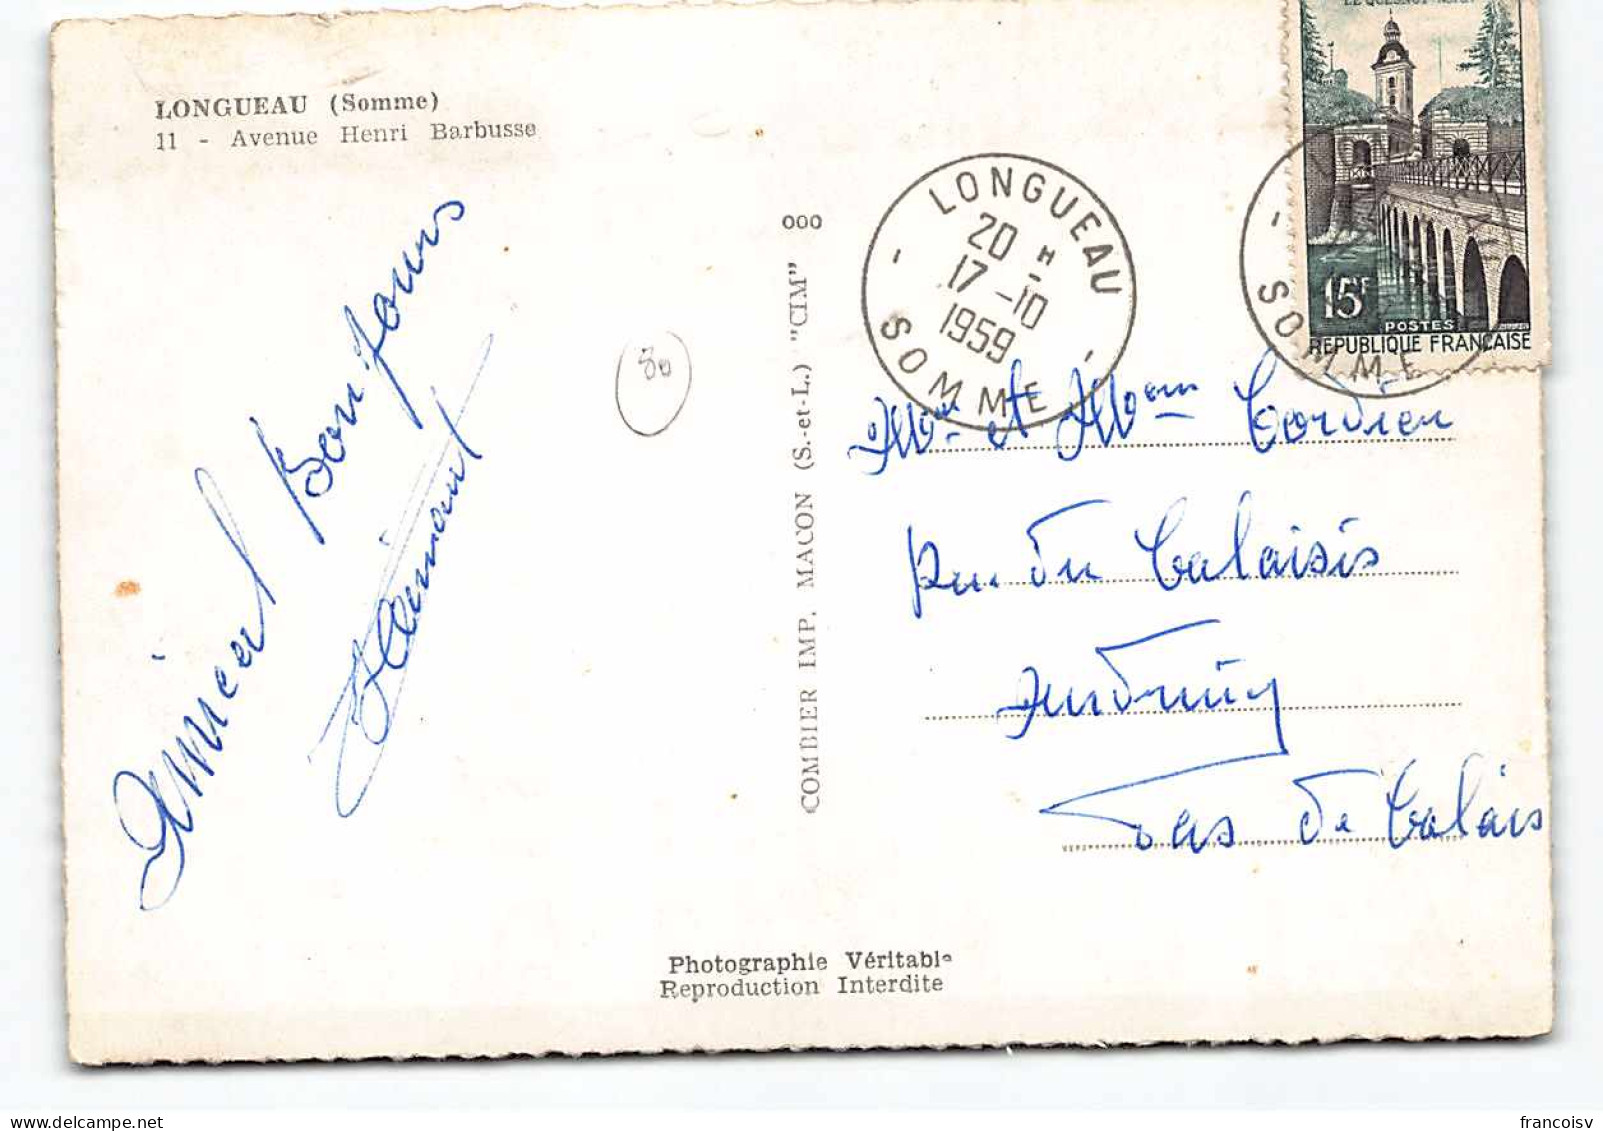 LONGUEAU (Somme)
11 - Avenue Henri Barbusse
Amical Bonjours
000
COMBIER IMP. MACON (S.-et-L.) "CIM"
80
LONGUEAU
20 H
17-10
1959
SOMME
15F
POSTES
REPUBLIQUE FRANÇAISE
SOMME
Mr et Mme Cordier
Rue du Calaisis
Audruicq
Pas de Calais
Photographie Véritable
Reproduction Interdite
francoisv